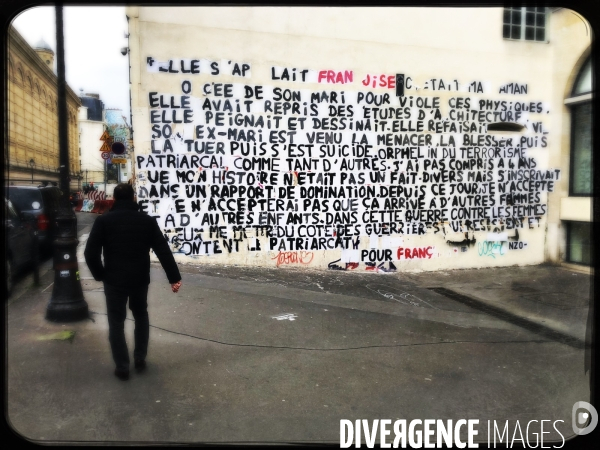 ELLE S'AP LAIT FRAN OISE C'ETAIT MA AMAN
O CEE DE SON MARI POUR VIOLE CES PHYSIQUES.
ELLE AVAIT REPRIS DES ETUDES D'A CHITECTURE
ELLE PEIGNAIT ET DESSINAIT. ELLE REFAISAIT VI
SO EX-MARI EST VENU LA MENACER, LA BLESSER, PUIS
LA TUER PUIS S'EST SUICIDE, ORPHELIN DU TERRORISME
PATRIARCAL COMME TANT D'AUTRES, J'AI PAS COMPRIS A 6 ANS
QUE MON HISTOIRE N'ETAIT PAS UN FAIT DIVERS MAIS S'INSCRIVAIT
DANS UN RAPPORT DE DOMINATION. DEPUIS CE JOUR, JE N'ACCEPTE
ET N'ACCEPTERAI PAS QUE ÇA ARRIVE A D'AUTRES FEMMES
A D'AUTRES ENFANTS. DANS CETTE GUERRE CONTRE LES FEMMES
ME METTR DU COTE DES GUERRIERES QUI RESISTENT ET
LE PATRIARCAT
POUR FRANÇ
NZO-
DIVERGENCE IMAGES